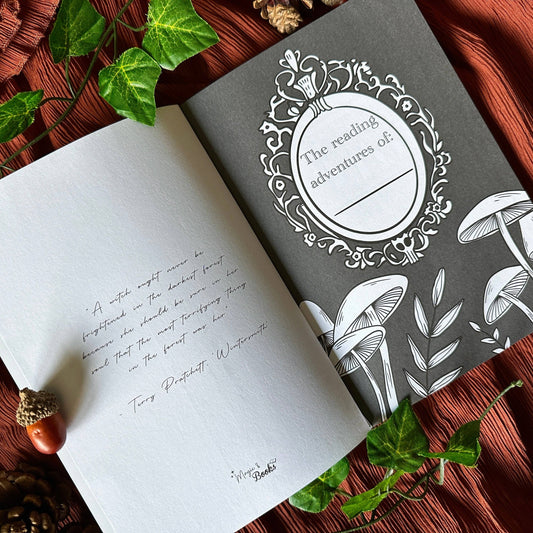 "A witch ought never be
frightened in the darkest forest
because she should be sure in her
soul that the most terrifying thing
in the forest was her"
- Terry Pratchett, 'Wintersmith'
Magic &
Books
The reading
adventures of: